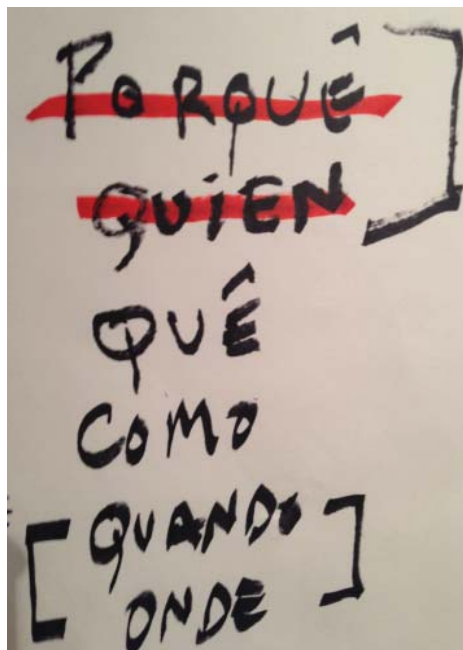 PORQUÊ
QUIEN
QUÊ
COMO
QUANDO
ONDE